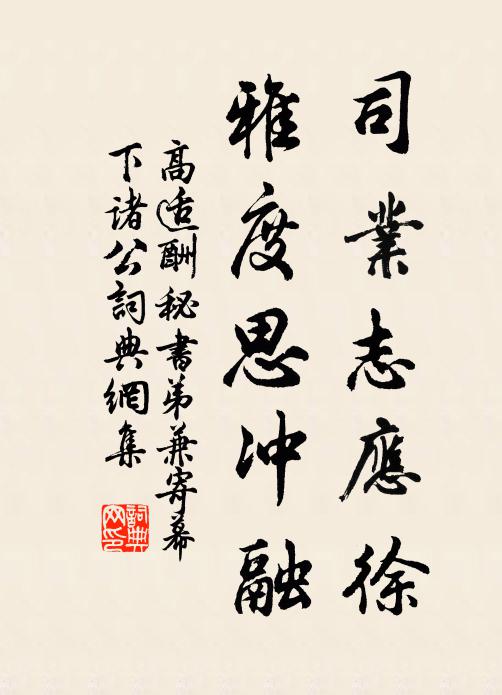 司業志應徐
雅度思冲融
高适酬秘書弟兼寄幕
下诸公詞典網集
詞典
网印